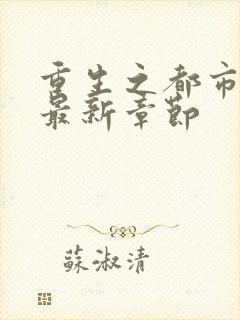 重生之都市
最新章節
蘇淑清